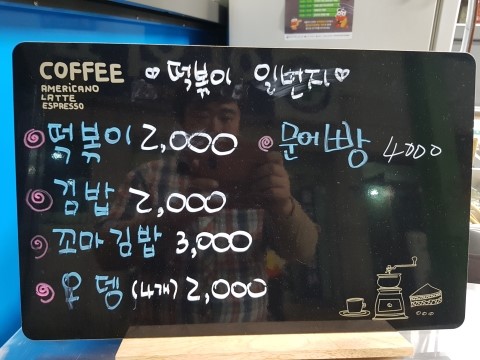 COFFEE
AMERICANO
LATTE
ESPRESSO
♡떡볶이 일번지♡
떡볶이 2,000
문어빵 4000
김밥 2,000
꼬마김밥 3,000
오뎅 (4개) 2,000